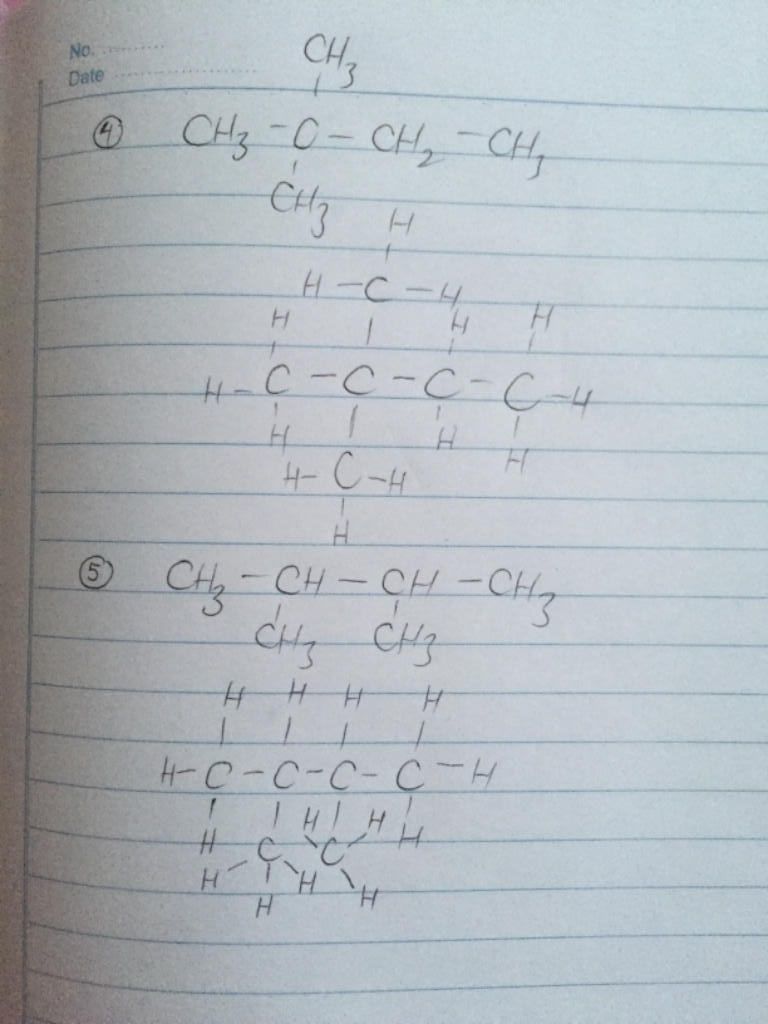 No. ............
Date ........................
CH₃
④ CH₃ - C - CH₂ - CH₃
CH₃
H
H - C - H
H H H
H - C - C - C - C - H
H H H
H - C - H
H
⑤ CH₃ - CH - CH - CH₃
CH₃ CH₃
H H H H
H - C - C - C - C - H
H H H H
C C
H H H
H